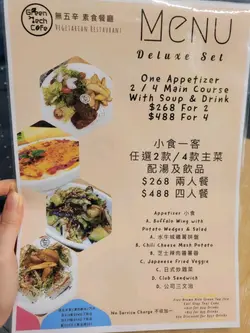 Green Tech Cafe
無五辛 素食餐廳
VEGETARIAN RESTAURANT
MENU
Deluxe Set
One Appetizer
2 / 4 Main Course
With Soup & Drink
$268 For 2
$488 For 4
小食一客
任選2款/4款主菜
配湯及飲品
$268 兩人餐
$488 四人餐
Appetizer 小食
A. Buffalo Wing with
Potato Wedges & Salad
A. 水牛城雞翼拼薯
B. Chili Cheese Mash Potato
B. 芝士辣肉醬薯蓉
C. Japanese Fried Veggie
C. 日式炒雜菜
D. Club Sandwich
D. 公司三文治
No Service Charge 不收加一